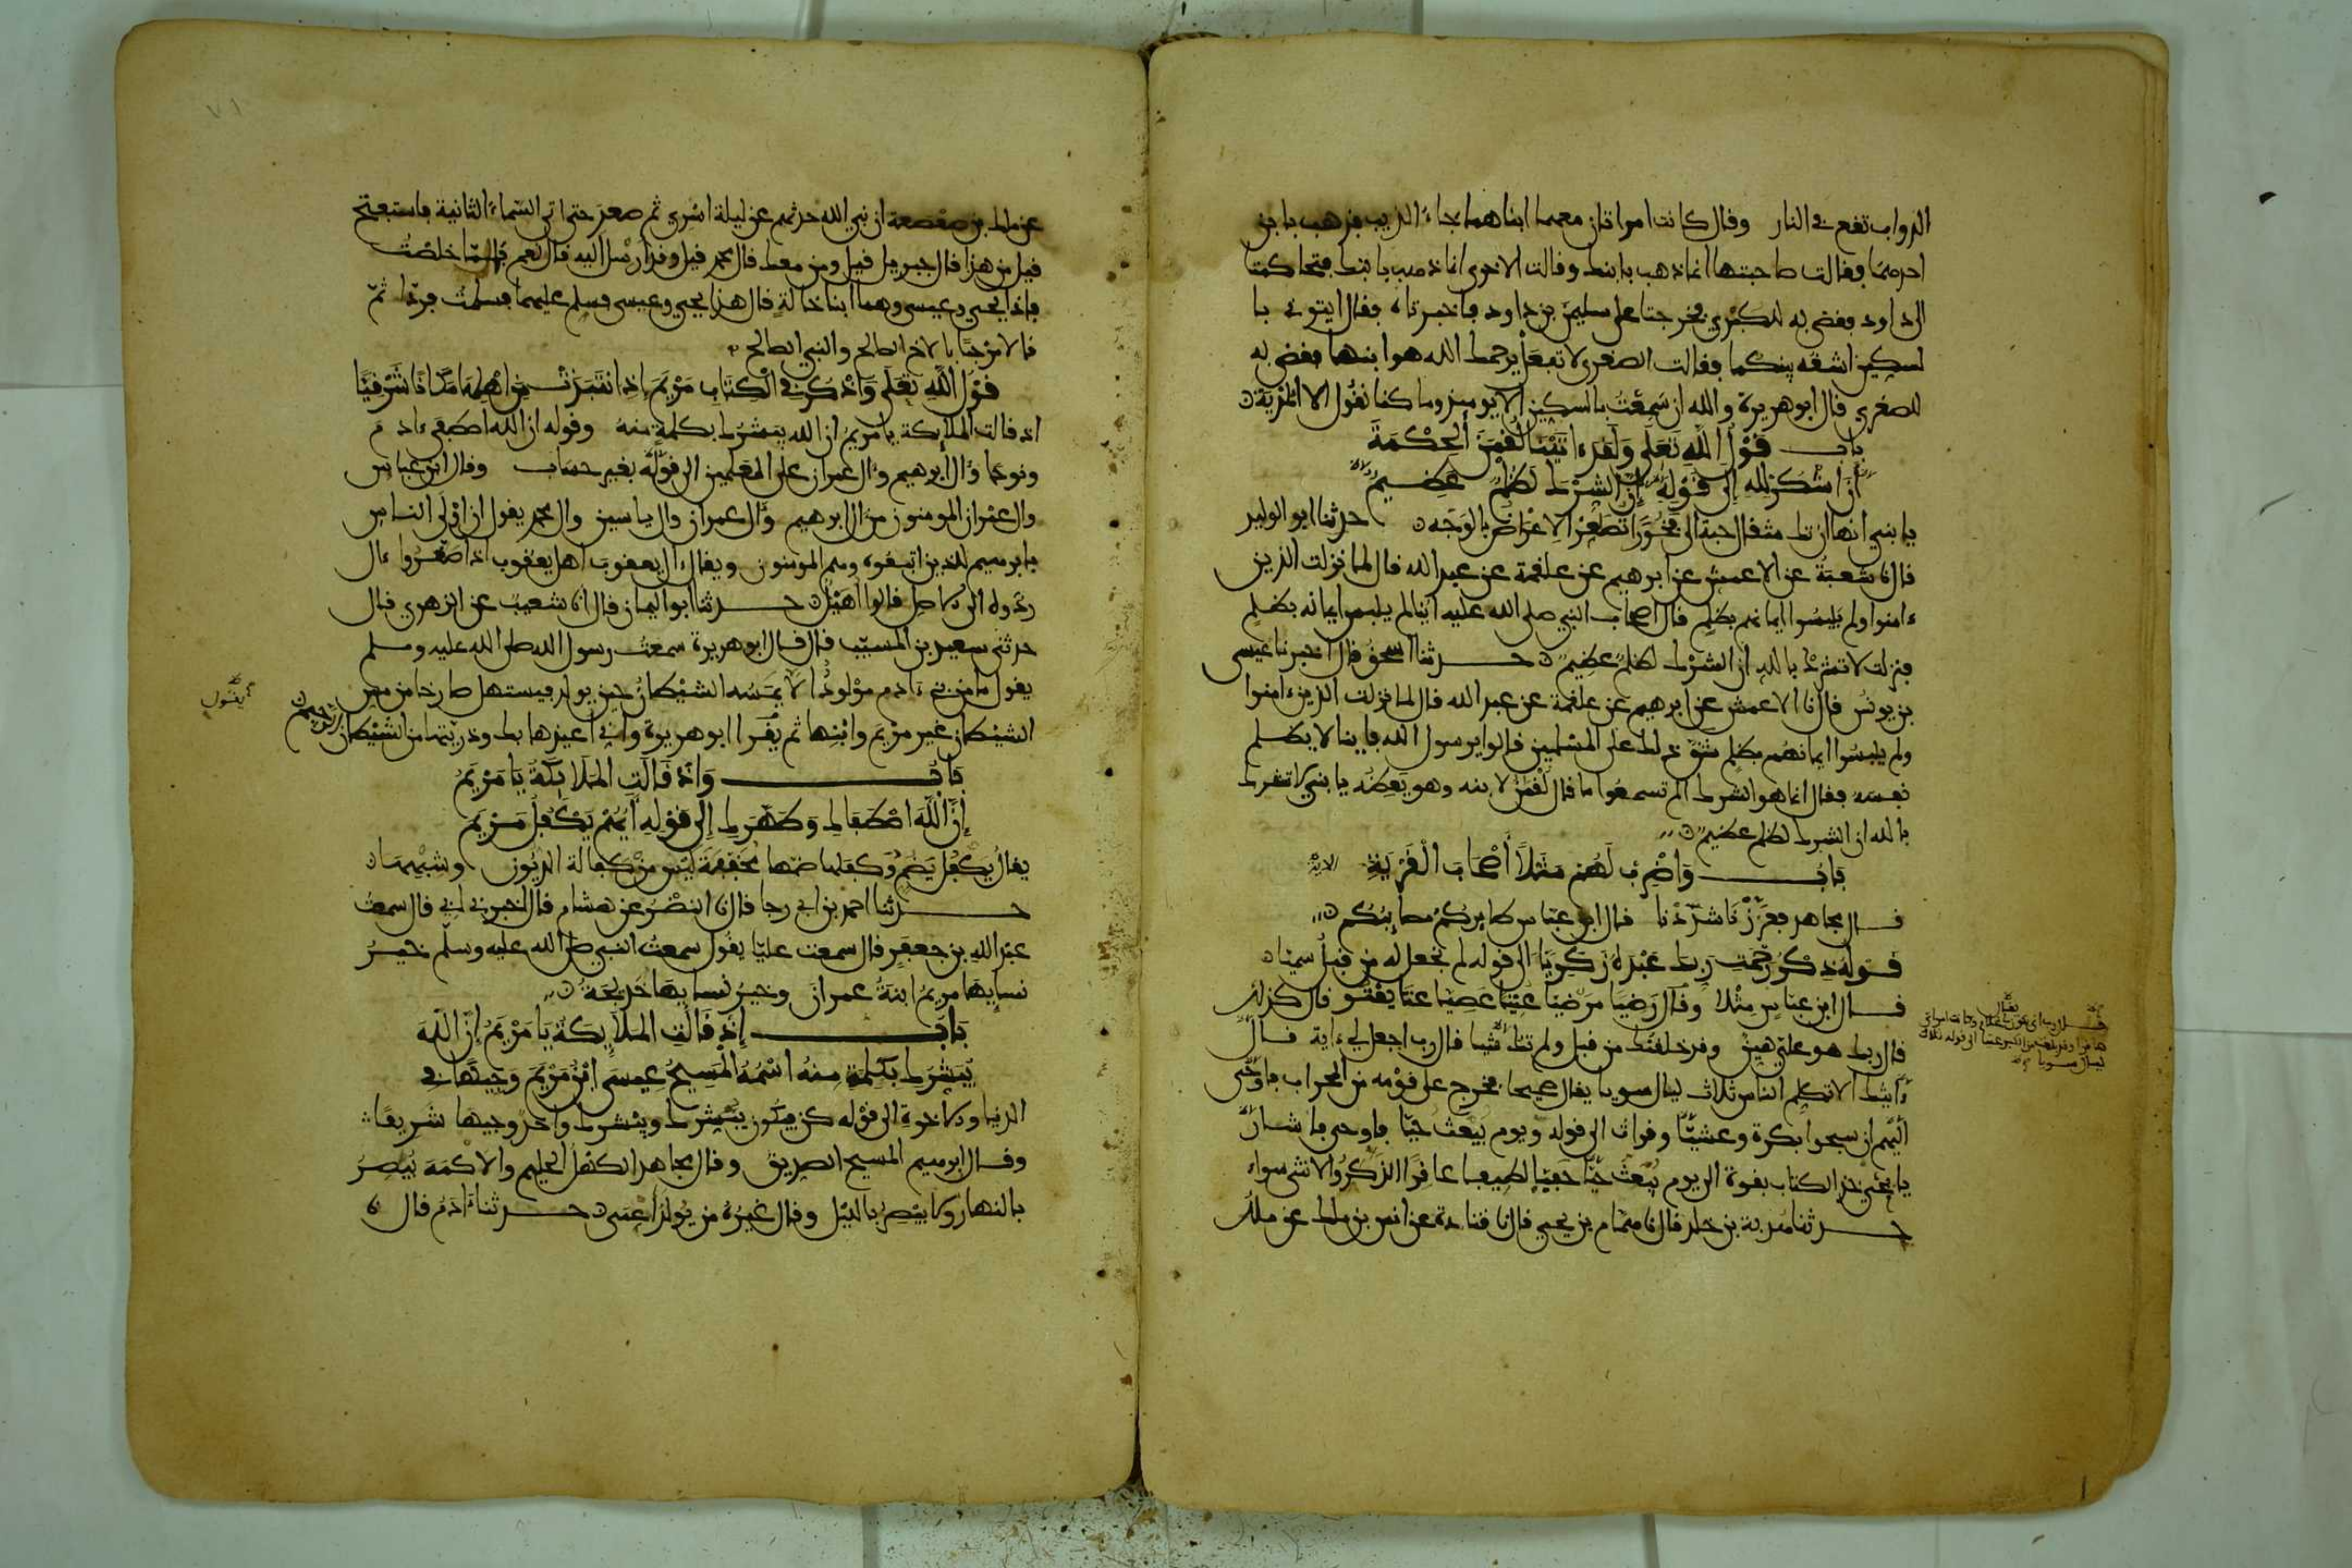 الدواب تقع في النار وقال كانت امراتان معهما ابناهما جاء الذيب فذهب بابن
احدهما فقالت صاحبتها انما ذهب بابنك وقالت الاخرى انما ذهب بابنك فتحاكمتا
الى داود فقضى به للكبرى فخرجتا على سليمن بن داود فاخبرتاه فقال ايتوني با
لسكين اشقه بينكما فقالت الصغرى لا تفعل يرحمك الله هو ابنها فقضى به
للصغرى قال ابو هريرة والله ان سمعت بالسكين الا يوميذ وما كنا نقول الا المدية
باب قول الله تعلى ولقد ءاتينا لقمن الحكمة
أن اشكر لله الى قوله إن الشرك لظلم عظيم
يا بني انها ان تك مثقال حبة الى فخور تصعر الاعراض بالوجه حدثنا ابو الوليد
قال نا شعبة عن الاعمش عن ابرهيم عن علقمة عن عبد الله قال لما نزلت الذين
ءامنوا ولم يلبسوا ايمانهم بظلم قال اصحاب النبي صلى الله عليه اينا لم يلبس ايمانه بظلم
فنزلت لا تشرك بالله ان الشرك لظلم عظيم حدثنا اسحق قال اخبرنا عيسى
بن يونس قال نا الاعمش عن ابرهيم عن علقمة عن عبد الله قال لما نزلت الذين ءامنوا
ولم يلبسوا ايمانهم بظلم شق ذلك على المسلمين قالوا يرسول الله فاينا لا يظلم
نفسه فقال انما هو الشرك الم تسمعوا ما قال لقمن لابنه وهو يعظه يا بني لا تشرك
بالله ان الشرك لظلم عظيم
باب واضرب لهم مثلا أصحاب القرية الاية
قال مجاهد فعززنا شددنا قال ابن عباس طايركم مصايبكم
قوله ذكر رحمت ربك عبده زكريا الى قوله لم نجعل له من قبل سميا
قال ابن عباس مثلا وقال رضيا مرضيا عتيا عصيا عتا يعتو قال كذلك
قال ربك هو علي هين وقد خلقتك من قبل ولم تك شيا قال رب اجعل لي ءاية قال
ءايتك الا تكلم الناس ثلاث ليال سويا يقال صحيحا فخرج على قومه من المحراب فاوحى
اليهم ان سبحوا بكرة وعشيا وقرات الى قوله ويوم يبعث حيا فاوحى فاشار
يا يحيى خذ الكتاب بقوة الى يوم يبعث حيا حفيا لطيفا عاقرا الذكر والانثى سواء
حدثنا هدبة بن خلد قال نا همام بن يحيى قال نا قتادة عن انس بن ملك عن ملك
عن ملك بن صعصعة ان نبي الله حدثهم عن ليلة اسري ثم صعد حتى اتى السماء الثانية فاستفتح
قيل من هذا قال جبريل قيل ومن معك قال محمد قيل وقد ارسل اليه قال نعم فلما خلصت
فاذا يحيى وعيسى وهما ابنا خالة قال هذا يحيى وعيسى فسلم عليهما فسلمت فردا ثم
قالا مرحبا بالاخ الصالح والنبي الصالح
قول الله تعلى واذكر في الكتاب مريم إذ انتبذت من اهلها مكانا شرقيا
اذ قالت الملايكة يا مريم ان الله يبشرك بكلمة منه وقوله ان الله اصطفى ءادم
ونوحا وءال ابرهيم وءال عمران على العلمين الى قوله بغير حساب وقال ابن عباس
وال عمران المومنون من ال ابرهيم وءال عمران وال ياسين وال محمد يقول ان اولى الناس
بابرهيم للذين اتبعوه وهم المومنون ويقال ال يعقوب اهل يعقوب اذا صغروا ءال
ردوه الى الاصل قالوا اهيل حدثنا ابو اليمان قال انا شعيب عن الزهري قال
حدثني سعيد بن المسيب قال قال ابو هريرة سمعت رسول الله صلى الله عليه وسلم
يقول ما من بني ءادم مولود الا يمسه الشيطان حين يولد فيستهل صارخا من مس
الشيطان غير مريم وابنها ثم يقرا ابو هريرة واني اعيذها بك وذريتها من الشيطان الرجيم
يقول
باب واذ قالت الملايكة يا مريم
إن الله اصطفاك وطهرك إلى قوله أيهم يكفل مريم
يقال يكفل يضم وكفلها ضمها مخففة ليس من كفالة الديون وشبهها
حدثنا احمد بن ابي رجا قال نا النضر عن هشام قال اخبرني ابي قال سمعت
عبد الله بن جعفر قال سمعت عليا يقول سمعت النبي صلى الله عليه وسلم خير
نسايها مريم ابنة عمران وخير نسايها خديجة
باب إذ قالت الملايكة يا مريم إن الله
يبشرك بكلمة منه اسمه المسيح عيسى ابن مريم وجيها في
الدنيا والاخرة الى قوله كن فيكون يبشرك ويبشرك واحد وجيها شريفا
وقال ابرهيم المسيح الصديق وقال مجاهد الكهل الحليم والاكمه يبصر
بالنهار ولا يبصر بالليل وقال غيره من يولد اعمى حدثنا ءادم قال نا